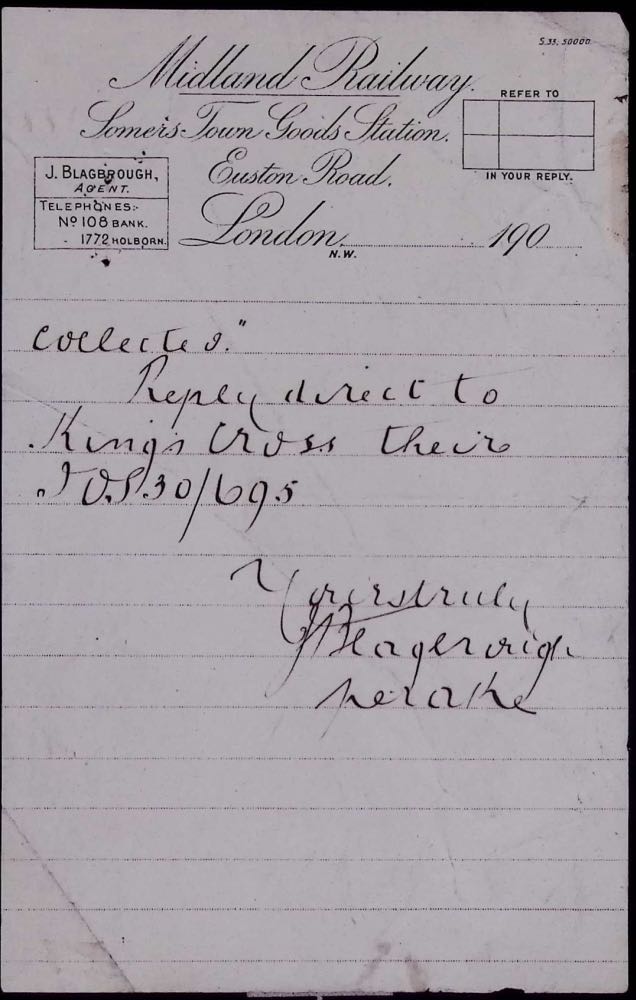 S.33. 50000
Midland Railway.
Somers Town Goods Station.
REFER TO
IN YOUR REPLY.
J. BLAGBROUGH,
AGENT.
TELEPHONES:-
Nº 108 BANK.
1772 HOLBORN.
Euston Road,
London, 190
N.W.
collected."
Reply direct to
Kings Cross their
30/695
Yours truly
JBlagbrough
per